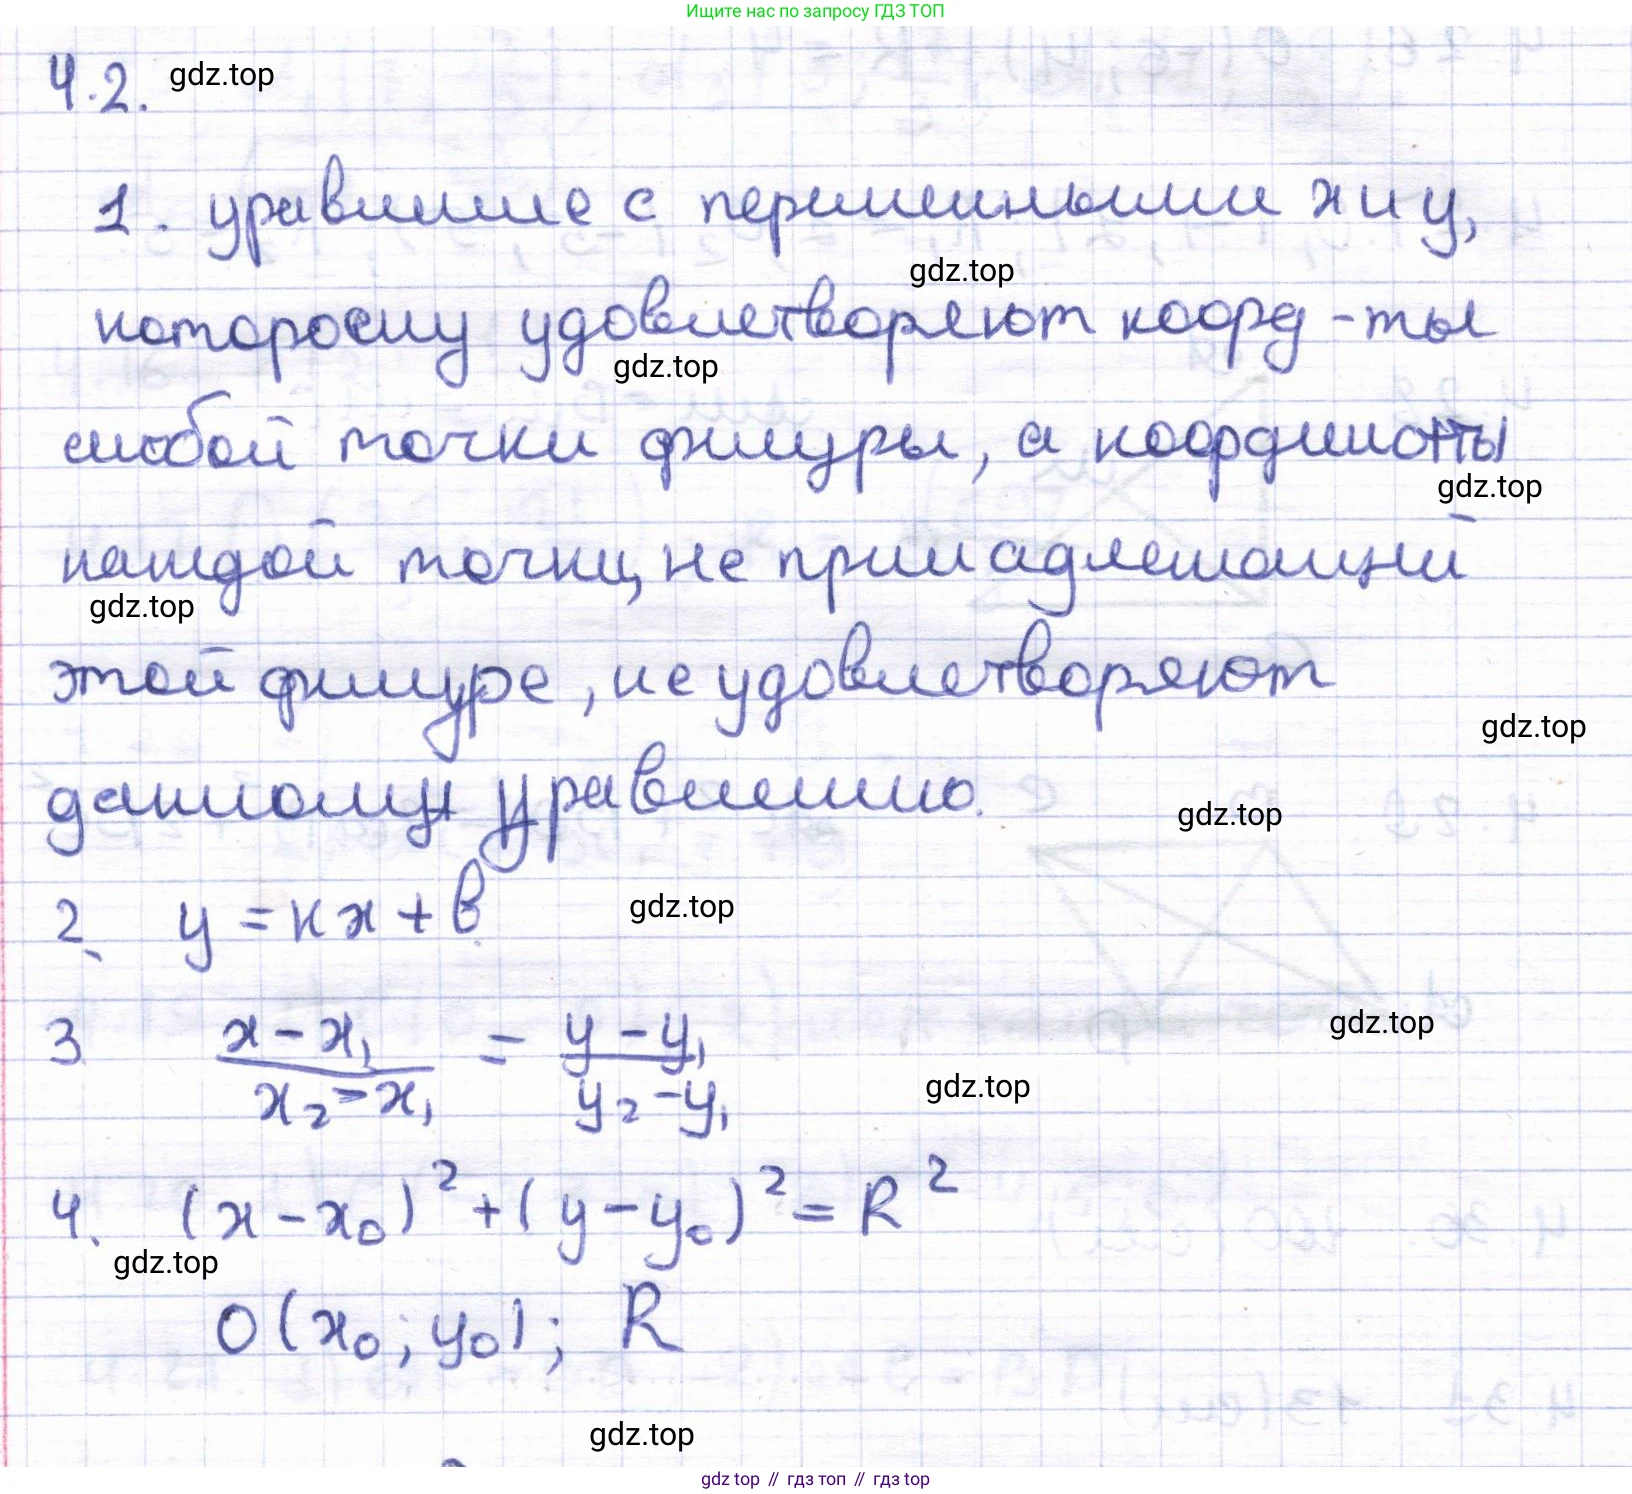 Ищите нас по запросу ГДЗ ТОП
4.2. gdz.top
1. уравнение с переменными x и y,
gdz.top
которому удовлетворяют коорд-ты
gdz.top
любой точки фигуры, а координаты
gdz.top
каждой точки, не принадлежащий
gdz.top
этой фигуре, не удовлетворяют
gdz.top
данному уравнению.
gdz.top
2. y = kx + b. gdz.top
3 (x - x₁)/(x₂ - x₁) = (y - y₁)/(y₂ - y₁)
gdz.top
gdz.top
4. (x - x₀)² + (y - y₀)² = R²
gdz.top
O(x₀; y₀); R
gdz.top
gdz top // гдз топ // гдз top